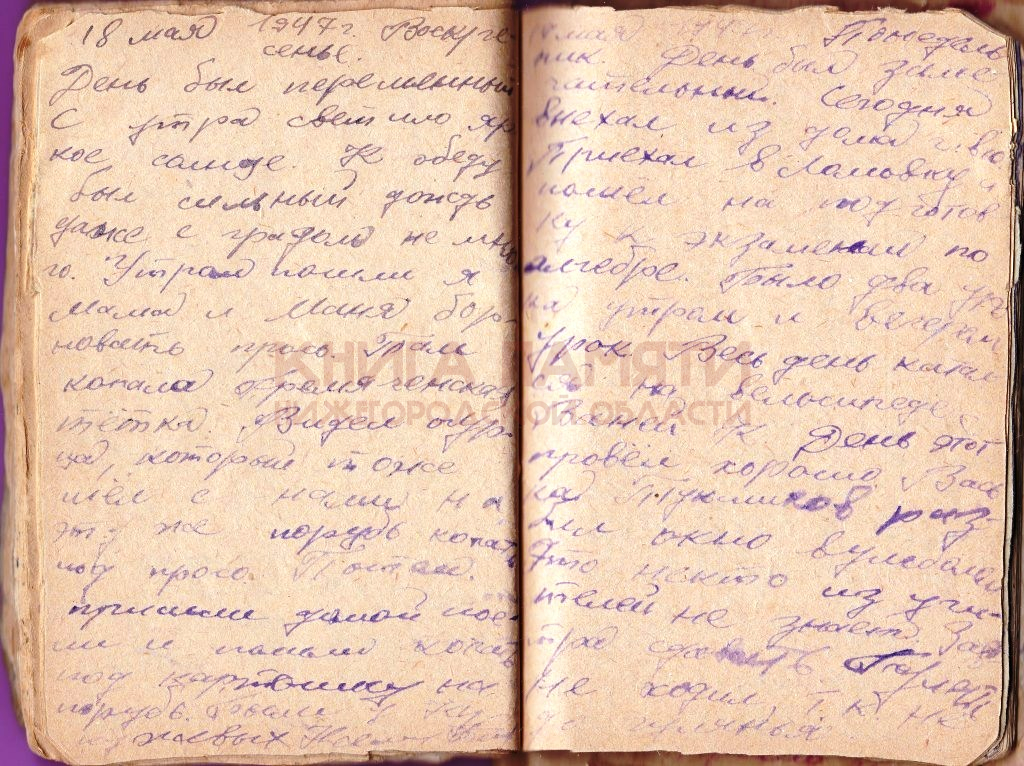 18 мая 1947 г. Воскре-
сенье.
День был переменный
С утра светило яр
кое солнце. К обеду
был сильный дождь
даже с градом не мно
го. Утром пошли я
мама и Маня бор-
новать просо. Там
копала
тётка. Видел
который тоже
шёл с нами на
эту же порубь копать
под просо. Потом
пришли домой пое-
ли и пошли копать
под картошку на
порубь. Были у
мая 1947 г. Понедель
ник. День был заме
чательный. Сегодня
выехал из дома
Приехал в Ломовку и
пошёл на подготов
ку к экзаменам по
алгебре. Было два
утром и вечером
урок. Весь день катал
ся на велосипеде
Женей К. День этот
провёл хорошо. Вась
ка раз-
бил окно в
Это никто из учи-
телей не знает. Зав
тра сдавать.
не ходил, т. к. не
КНИГА ПАМЯТИ
НИЖЕГОРОДСКОЙ ОБЛАСТИ